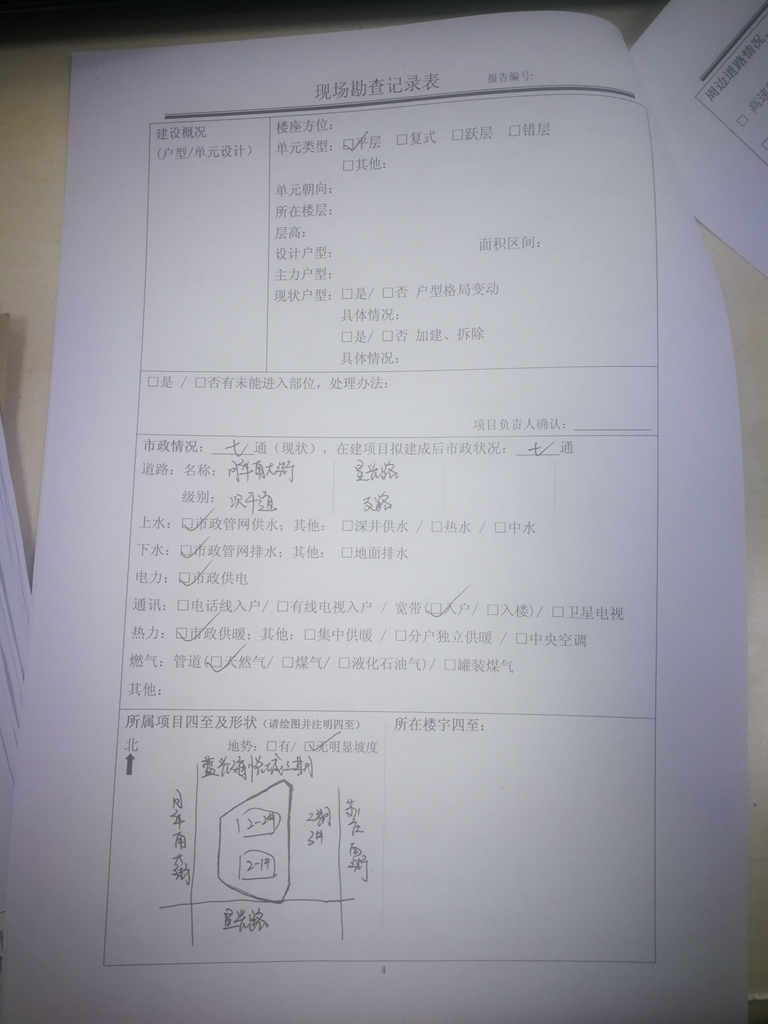 现场勘查记录表
报告编号:
建设概况
(户型/单元设计)
楼座方位:
单元类型: ☑平层 □复式 □跃层 □错层
□其他:
单元朝向:
所在楼层:
层高:
设计户型: 面积区间:
主力户型:
现状户型: □是/ □否 户型格局变动
具体情况:
□是/ □否 加建、拆除
具体情况:
□是 / □否有未能进入部位, 处理办法:
项目负责人确认:
市政情况: 七 通(现状), 在建项目拟建成后市政状况: 七 通
道路: 名称: 南大街 星光路
级别: 次干道 支路
上水: ☑市政管网供水; 其他: □深井供水 / □热水 / □中水
下水: ☑市政管网排水; 其他: □地面排水
电力: ☑市政供电
通讯: □电话线入户/ □有线电视入户 / 宽带(☑入户/ □入楼)/ □卫星电视
热力: ☑市政供暖; 其他: □集中供暖 / □分户独立供暖 / □中央空调
燃气: 管道(☑天然气/ □煤气/ □液化石油气)/ □罐装煤气
其他:
所属项目四至及形状 (请绘图并注明四至)
所在楼宇四至:
北
地势: □有/ ☑无明显坡度
南大街
2-2#
2-1#
2期
3#
星光路
4
周边道路情况
□ 高速